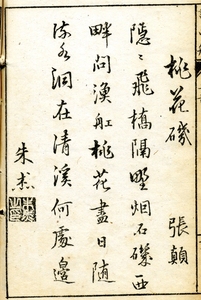 桃花磯
張顛
隠〻飛橋隔野烟石磯西
畔問漁舩桃花盡日随
流水洞在清溪何處邊
朱杰